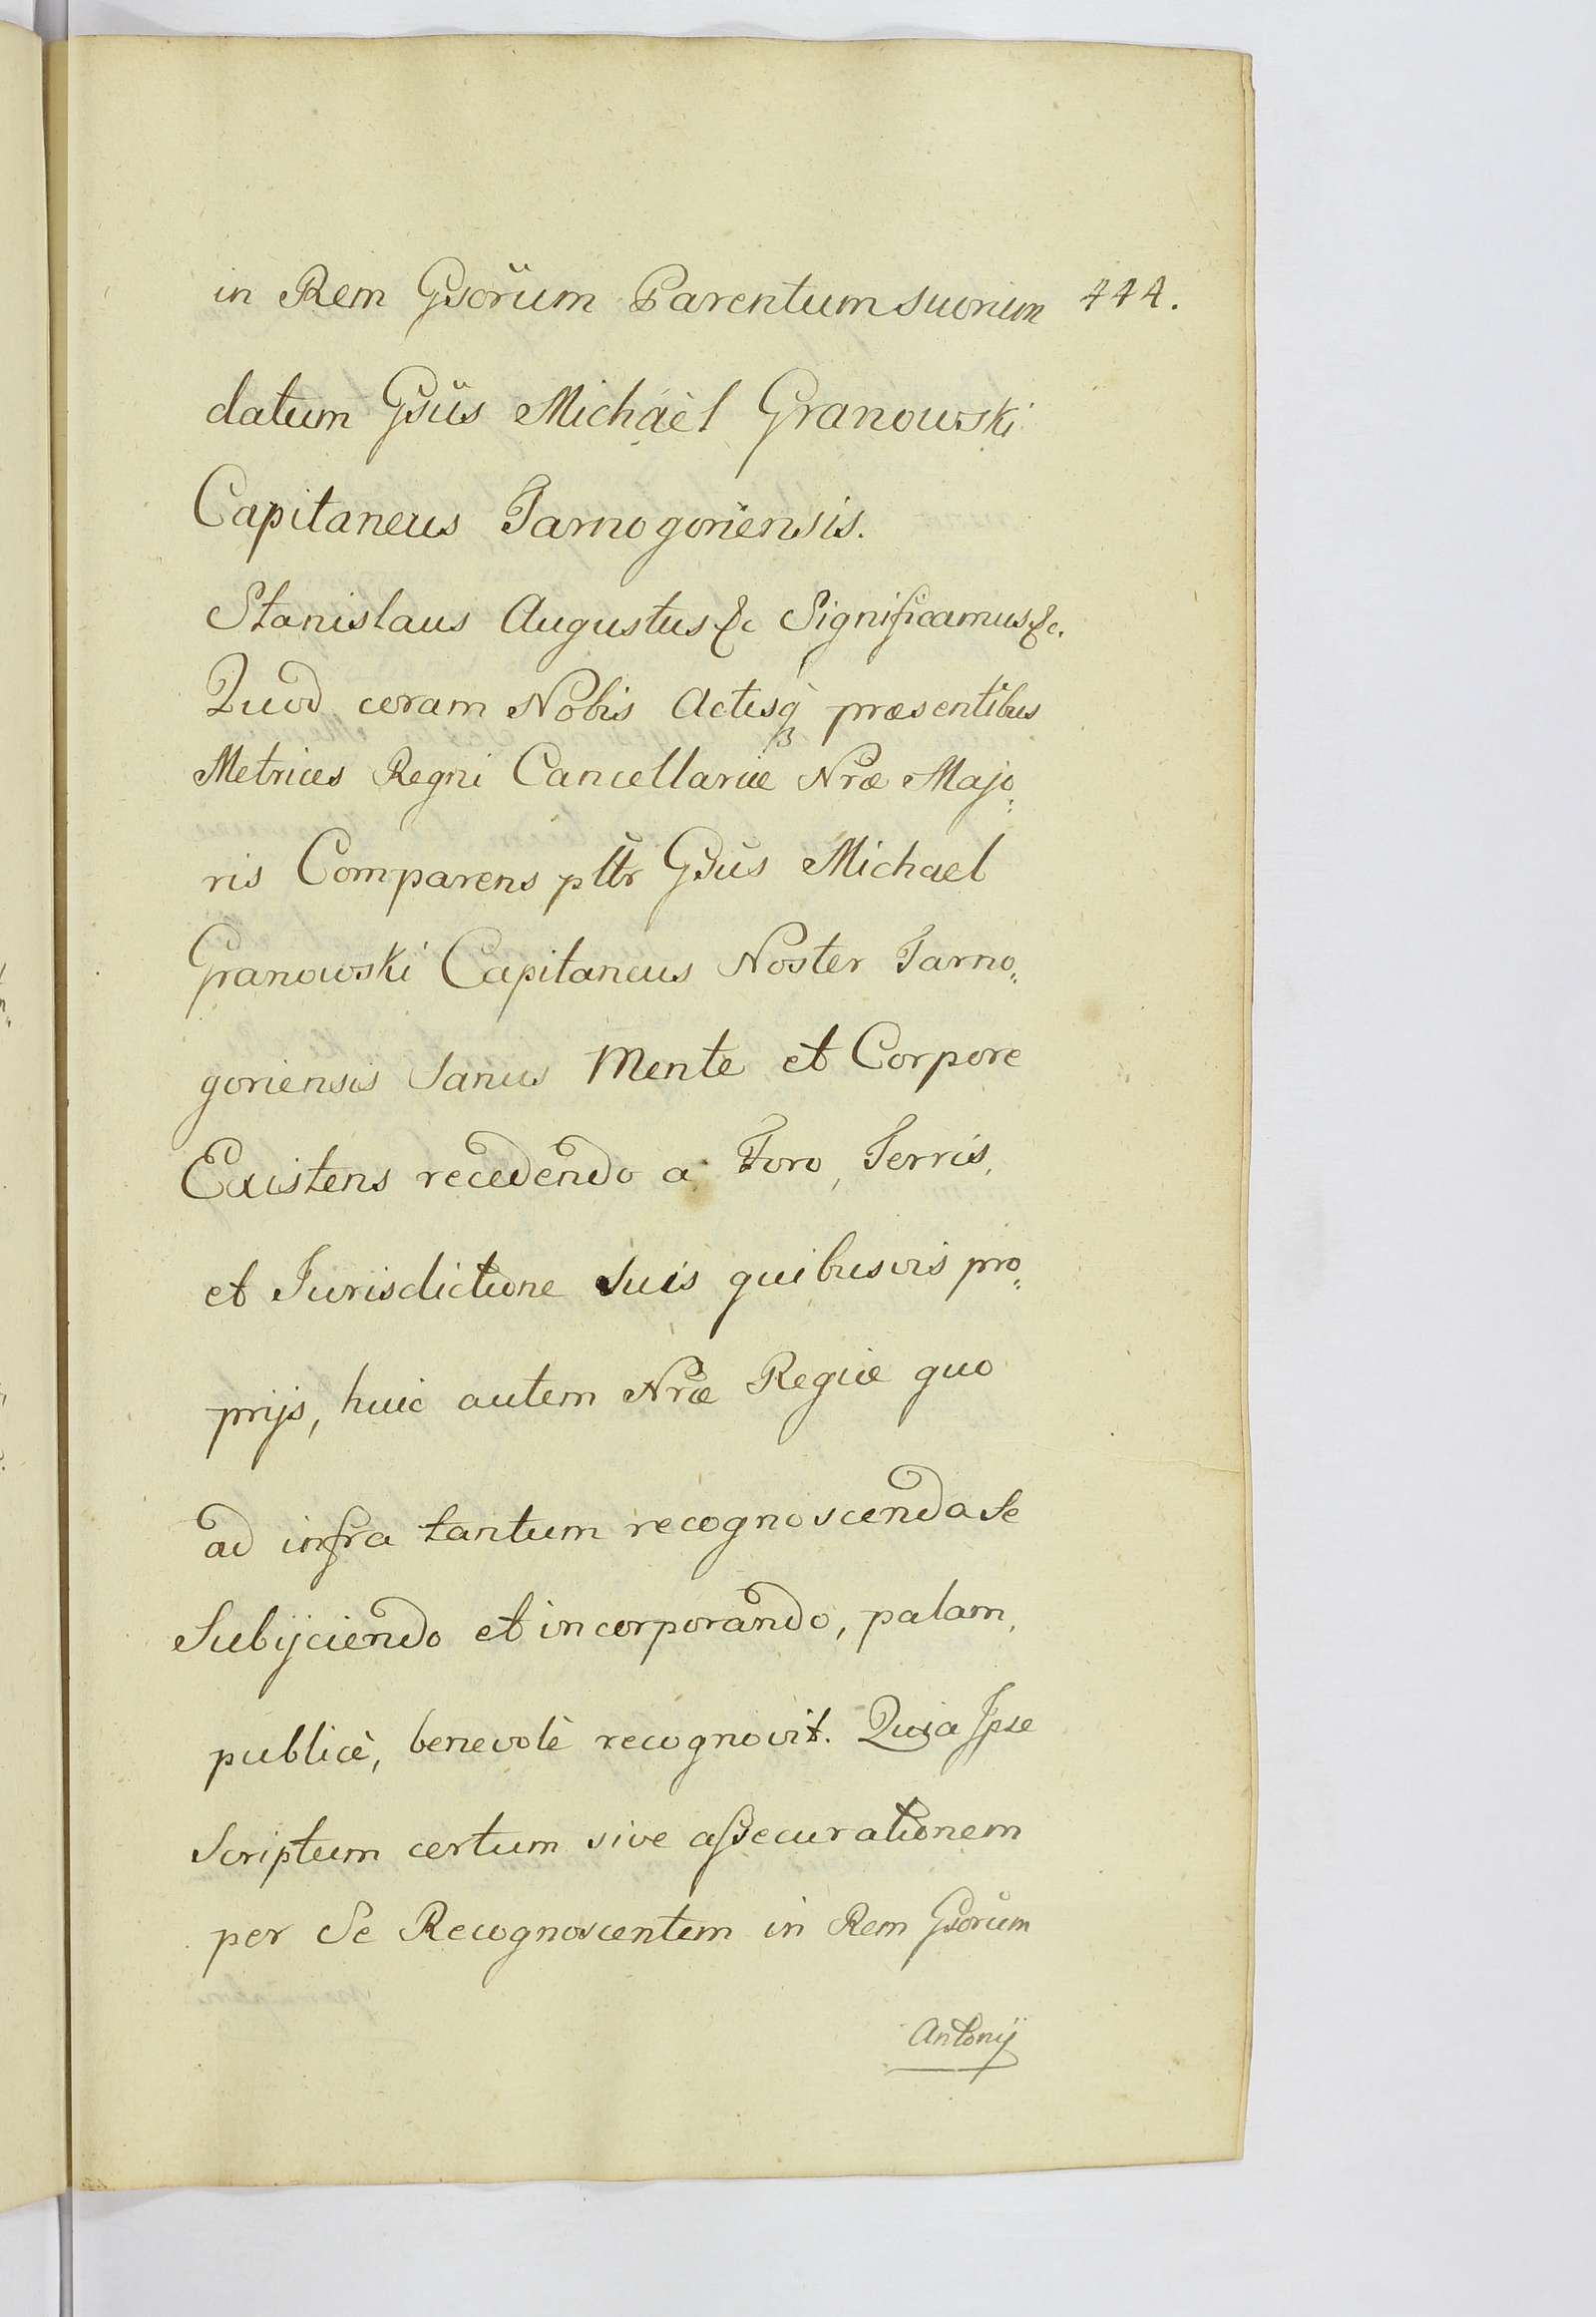 in Rem Gsorum Parentum suorum 444.
datum Gsus Michaèl Granowski
Capitaneus Tarnogoriensis.
Stanislaus Augustus &c Significamus &c.
Quod coram Nobis Actisq præsentibus
Metrices Regni Cancellariæ Nræ Majo:
ris Comparens pltr Gsus Michael
Granowski Capitaneus Noster Tarno:
goriensis Sanus Mente et Corpore
Existens recedendo a Foro, Terris,
et Jurisdictione suis quibusvis pro:
prijs, huic autem Nræ Regiæ quo
ad infra tantum recognoscenda se
Subijciendo et incorporando, palam,
publicè, benevolè recognovit. Quia Ipse
Scriptum certum sive assecurationem
per Se Recognoscentem in Rem Gsorum
Antonij